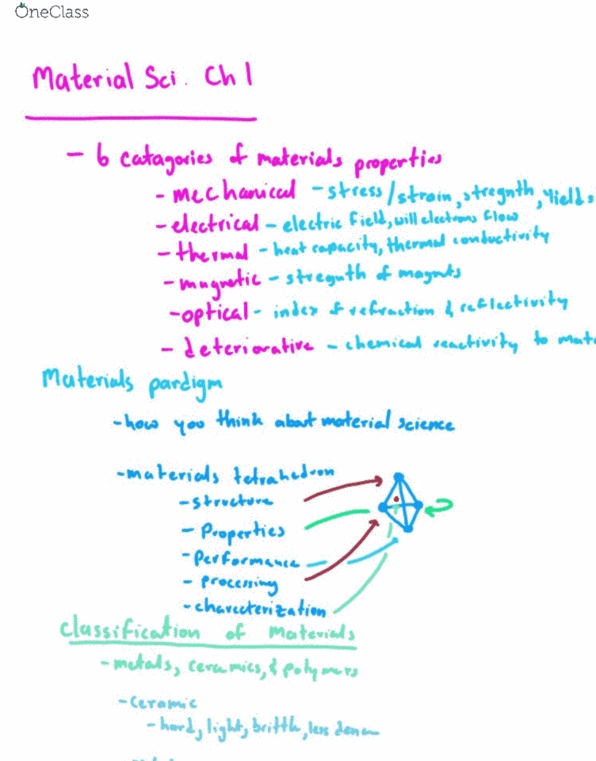 OneClass
Material Sci. Ch 1
- 6 catagories of materials properties
- mechanical - stress/strain, stregnth, yields
- electrical - electric field, will electrons flow
- thermal - heat capacity, thermal conductivity
- magnetic - stregnth of magnts
- optical - index of refraction & reflectivity
- deteriorative - chemical reactivity to mate
Materials pardigm
- how you think about material science
- materials tetrahedron
- structure
- Properties
- Performance
- processing
- charecterization
Classification of Materials
- metals, ceramics, & polymers
- Ceramic
- hard, light, brittle, less dense